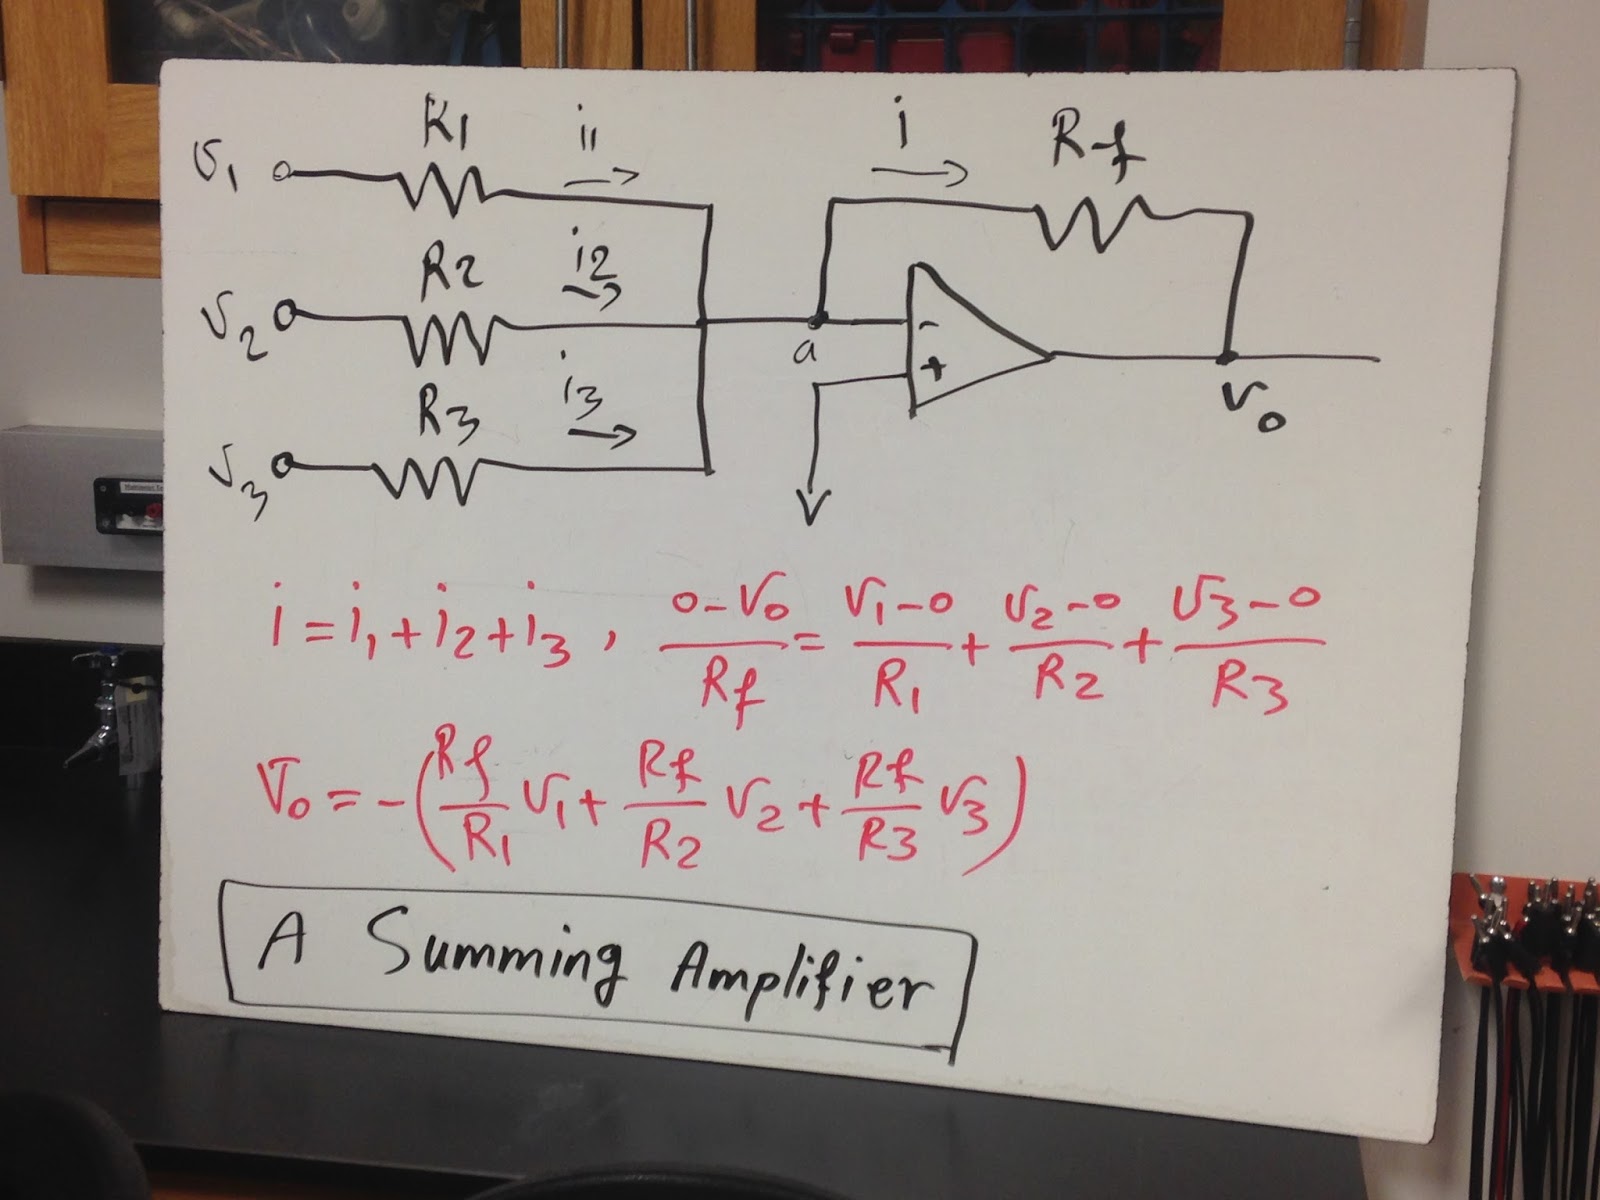 R1 i1 i Rf
v1
R2 i2
v2
- a +
R3 i3
v3
vo
i = i1 + i2 + i3 , 0-Vo/Rf = V1-0/R1 + V2-0/R2 + V3-0/R3
Vo = -(Rf/R1 V1 + Rf/R2 V2 + Rf/R3 V3)
A Summing Amplifier